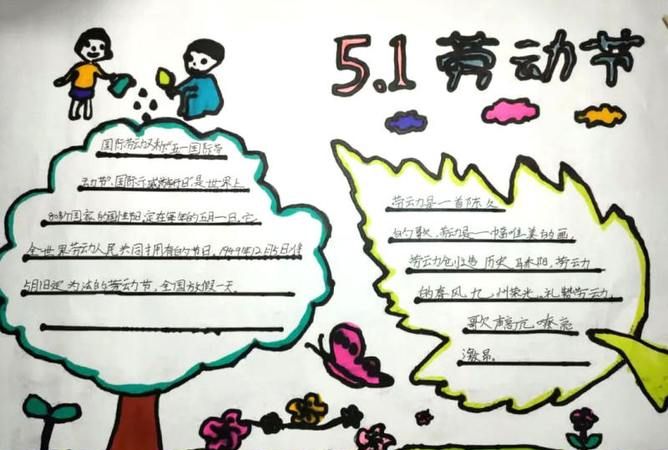 5.1 劳动节
国际劳动又称"五一国际劳
动节"、国际示威游行日"是世界上
80多个国家的国性节日,定在每年的五月一日,它
全世界劳动人民共同拥有的节日,1949年12月5日将
5月1日定为法的劳动节,全国放假一天
劳动是一首陈久
的歌,劳动是一中首唯美的画,
劳动创造历史
的春风,九州荣光,礼赞劳动,
歌声高亢
激昂。